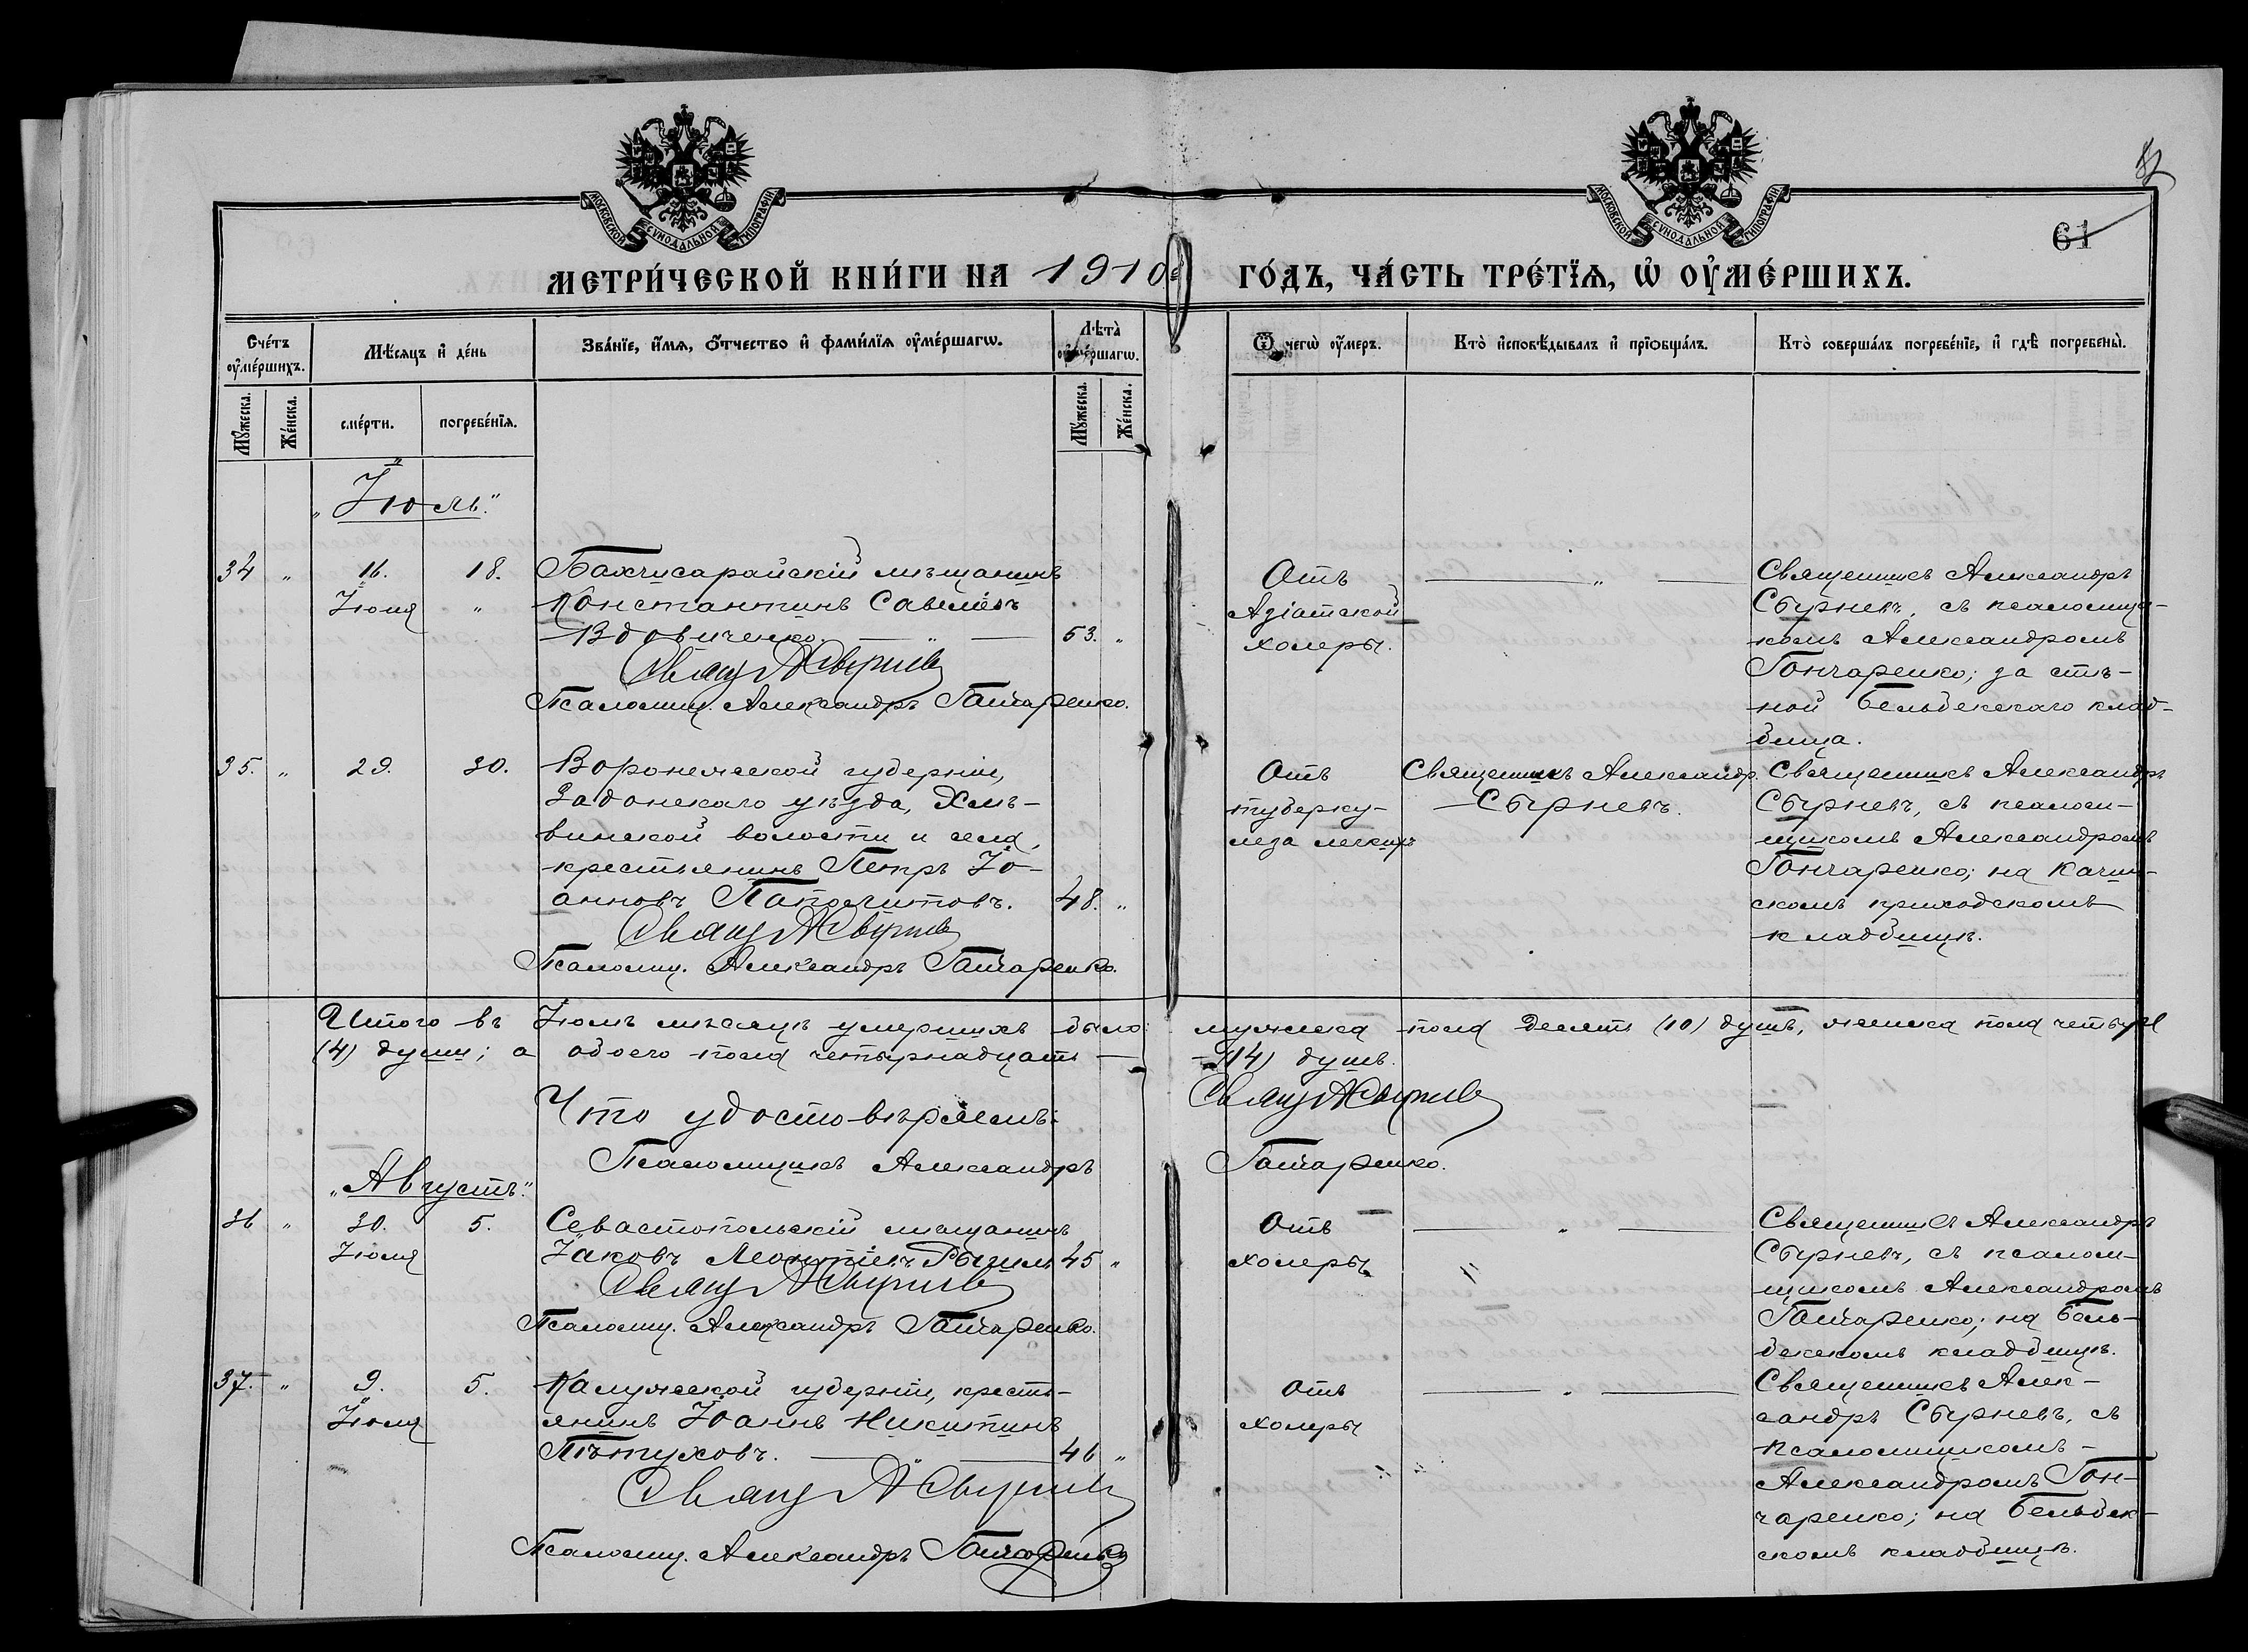 МОСКОВСКОЙ СѴНОДАЛЬНОЙ ТИПОГРАФІИ
МОСКОВСКОЙ СѴНОДАЛЬНОЙ ТИПОГРАФІИ
61
МЕТРИ́ЧЕСКОЙ КНИ́ГИ НА 1910 ГО́ДЪ, ЧА́СТЬ ТРЕ́ТЇѦ, Ѡ҆ ОУ҆МЕ́РШИХЪ.
Сче́тъ оу҆ме́ршихъ.
Мѣ́сяцъ и҆ де́нь
Зва́нїе, и҆́мѧ, ѻ҆́тчество и҆ фами́лїѧ оу҆ме́ршагѡ.
Лѣта̀ оу҆ме́ршагѡ.
Ѿ чегѡ̀ оу҆́меръ.
Кто̀ и҆сповѣ́дывалъ и҆ прїѡбща́лъ.
Кто̀ соверша́лъ погребе́нїе, и҆ гдѣ̀ погребены̀.
Мꙋ́жеска.
Же́нска.
сме́рти.
погребе́нїѧ.
Мꙋ́жеска.
Же́нска.
„Іюль“.
34 „ 16. 18. Бахчисарайскій мѣщанинъ
Іюля „ Константинъ Савеліевъ
Вдовиченко. — „ — 53. „
Свящ А Свирневъ
Псаломщ. Александръ Гончаренко.
Отъ
Азіатской
холеры.
— „ —
Священникъ Александръ
Сбирневъ, съ псаломщи-
комъ Александромъ
Гончаренко; за стѣ-
ной Бельбекскаго клад-
бища.
35. „ 29. 30. Воронежской губерніи,
Задонскаго уѣзда, Хлѣ-
винской волости и села,
крестьянинъ Петръ Іо-
анновъ 48. „
Псаломщ. Александръ Гончаренко.
Отъ
туберку-
леза легкихъ
Священникъ Александр.
Сбирневъ.
Священникъ Александръ
Сбирневъ, съ псалом-
щикомъ Александромъ
Гончаренко; на Качин-
скомъ приходскомъ
кладбищѣ.
Итого въ Іюлѣ мѣсяцѣ умершихъ было: мужеска пола десять (10) душъ, женска пола четыре
(4) души; а обоего пола четырнадцать — (14) душъ.
Что удостовѣряемъ:
Псаломщикъ Александръ Гончаренко.
„Августъ“.
36 „ 30. 5. Севастопольскій мещанинъ
Іюля Іаковъ Леонтіевъ 45 „
Псаломщ. Александръ Гончаренко.
Отъ
холеры
— „ —
Священникъ Александръ
Сбирневъ, съ псалом-
щикомъ Александромъ
Гончаренко; на Бель-
бекскомъ кладбищѣ.
37. „ 9. 5. Калужской губерніи, кресть-
Іюля янинъ Іоаннъ Никитинъ
Пѣтуховъ. — „ — 46 „
Псаломщ. Александръ Гончаренко
Отъ
холеры
— „ —
Священникъ Алек-
сандръ Сбирневъ, съ
псаломщикомъ
Александромъ Гон-
чаренко; на Бельбек-
скомъ кладбищѣ.